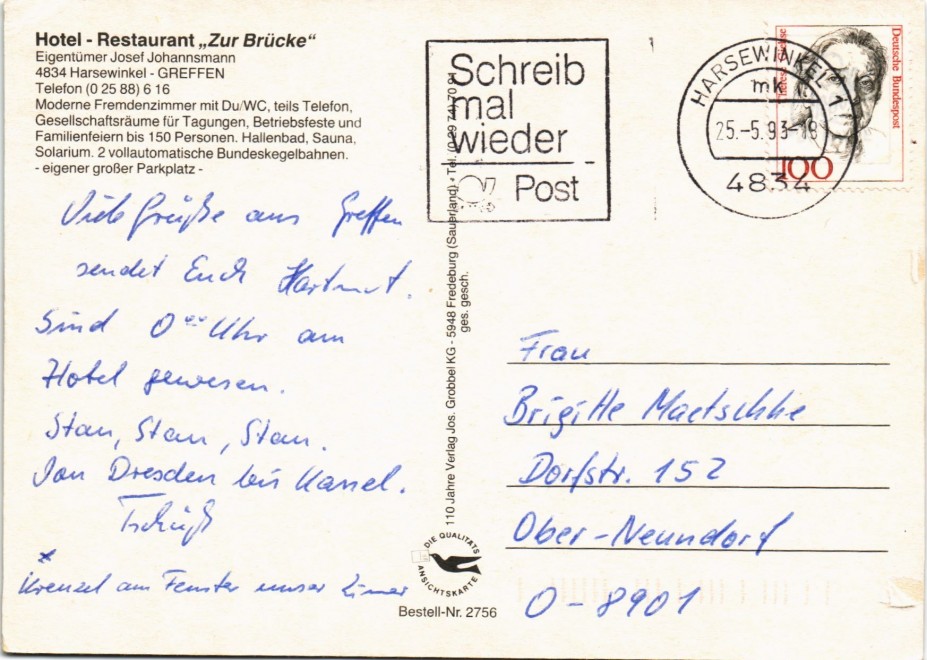 Hotel - Restaurant „Zur Brücke"
Eigentümer Josef Johannsmann
4834 Harsewinkel - GREFFEN
Telefon (0 25 88) 6 16
Moderne Fremdenzimmer mit Du/WC, teils Telefon,
Gesellschaftsräume für Tagungen, Betriebsfeste und
Familienfeiern bis 150 Personen. Hallenbad, Sauna,
Solarium. 2 vollautomatische Bundeskegelbahnen.
- eigener großer Parkplatz -
Viele Grüße aus Greffen
sendet Euch Hartmut.
Sind 0 Uhr am
Hotel gewesen.
Stau, Stau, Stau.
Von Dresden bis Kassel.
Tschüß
x
Kreuzel am Fenster unser Zimer
Schreib
mal
wieder
Post
HARSEWINKEL 1
mk
25.-5.93-18
4834
Deutsche Bundespost
100
110 Jahre Verlag Jos. Grobbel KG - 5948 Fredeburg (Sauerland) · Tel. (0 29 74) 70 91
ges. gesch.
Frau
Brigitte Maetschke
Dorfstr. 152
Ober-Neundorf
O-8901
DIE QUALITÄTS
ANSICHTSKARTE
Bestell-Nr. 2756